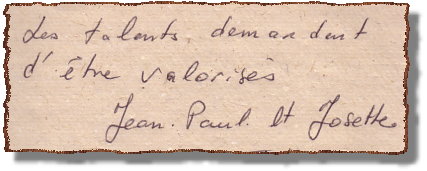 Les talents demandent
d'être valorisés
Jean. Paul. et Josette